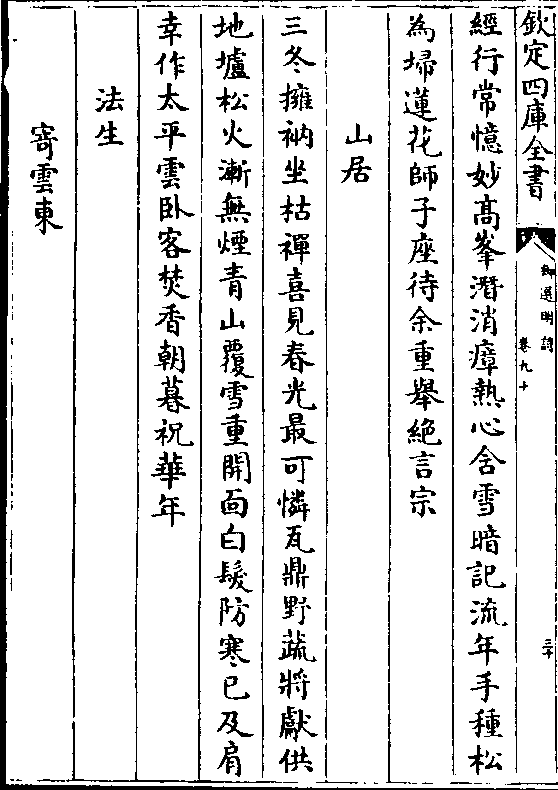 欽定四庫全書
御選明詩
卷九十
三十
經行常憶妙髙峯潛消瘴熱心含雪暗記流年手種松
為埽蓮花師子座待余重舉絶言宗
山居
三冬擁衲坐枯禪喜見春光最可憐瓦鼎野蔬將獻供
地爐松火漸無煙青山覆雪重開面白髮防寒已及肩
幸作太平雲卧客焚香朝暮祝華年
法生
寄雲東